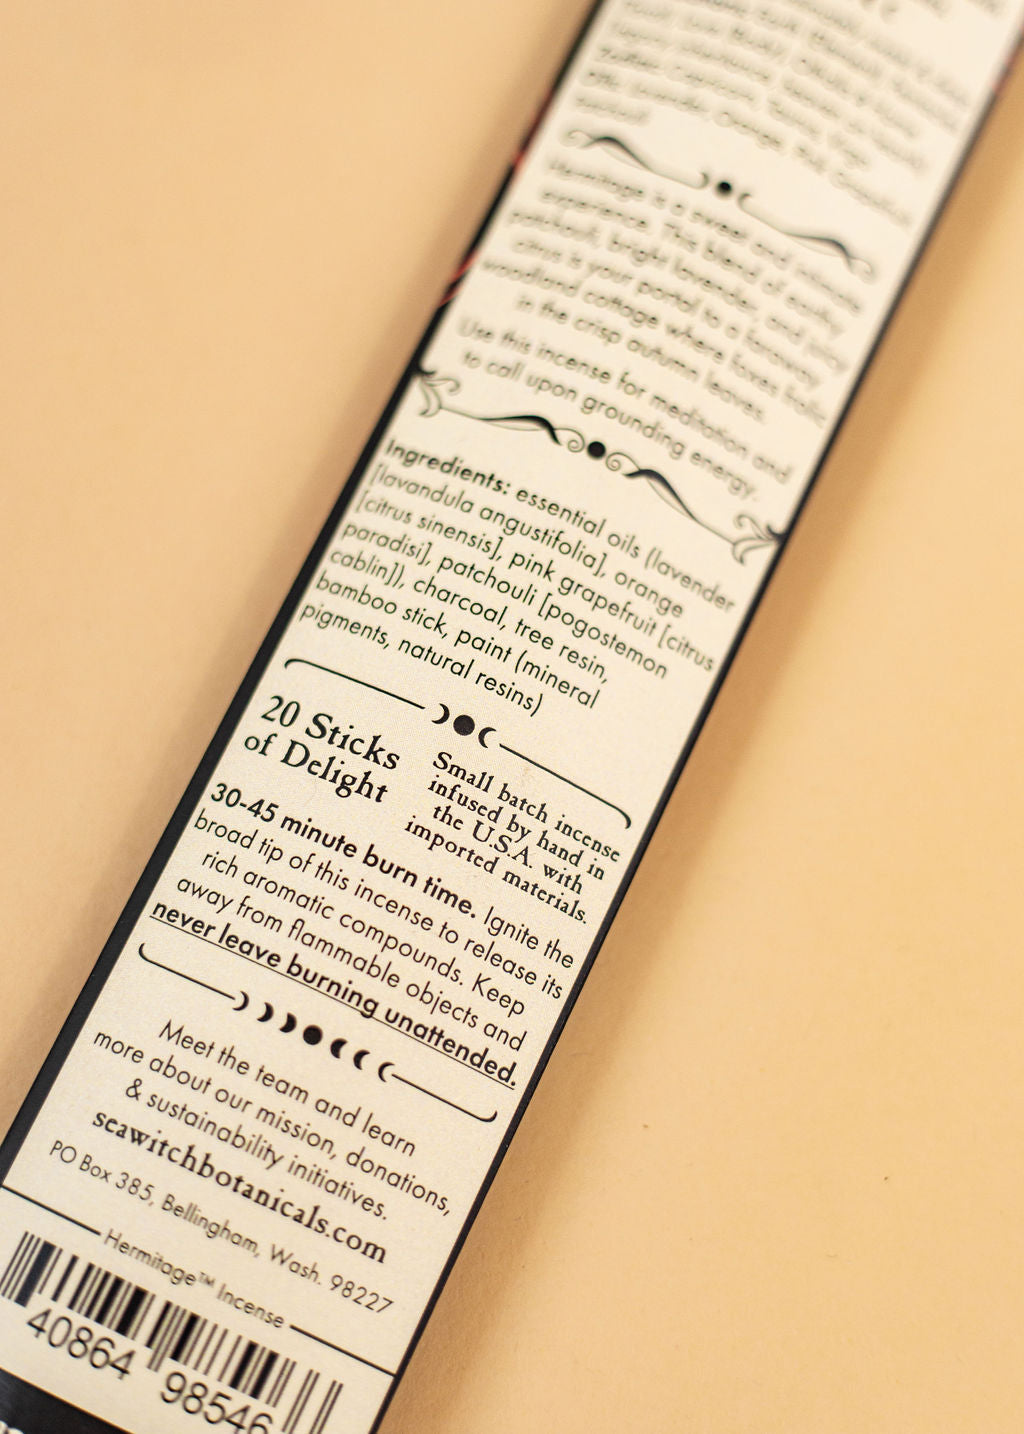 Hermitage is a sweet and intimate
experience. This blend of earthy
patchouli, bright lavender, and juicy
citrus is your portal to a faraway
woodland cottage where foxes frolic
in the crisp autumn leaves.
Use this incense for meditation and
to call upon grounding energy.
Ingredients: essential oils (lavender
[lavandula angustifolia], orange
[citrus sinensis], pink grapefruit [citrus
paradisi], patchouli [pogostemon
cablin]), charcoal, tree resin,
bamboo stick, paint (mineral
pigments, natural resins)
20 Sticks
of Delight
Small batch incense
infused by hand in
the U.S.A. with
imported materials.
30-45 minute burn time. Ignite the
broad tip of this incense to release its
rich aromatic compounds. Keep
away from flammable objects and
never leave burning unattended.
Meet the team and learn
more about our mission, donations,
& sustainability initiatives.
seawitchbotanicals.com
PO Box 385, Bellingham, Wash. 98227
Hermitage™ Incense
40864 98546